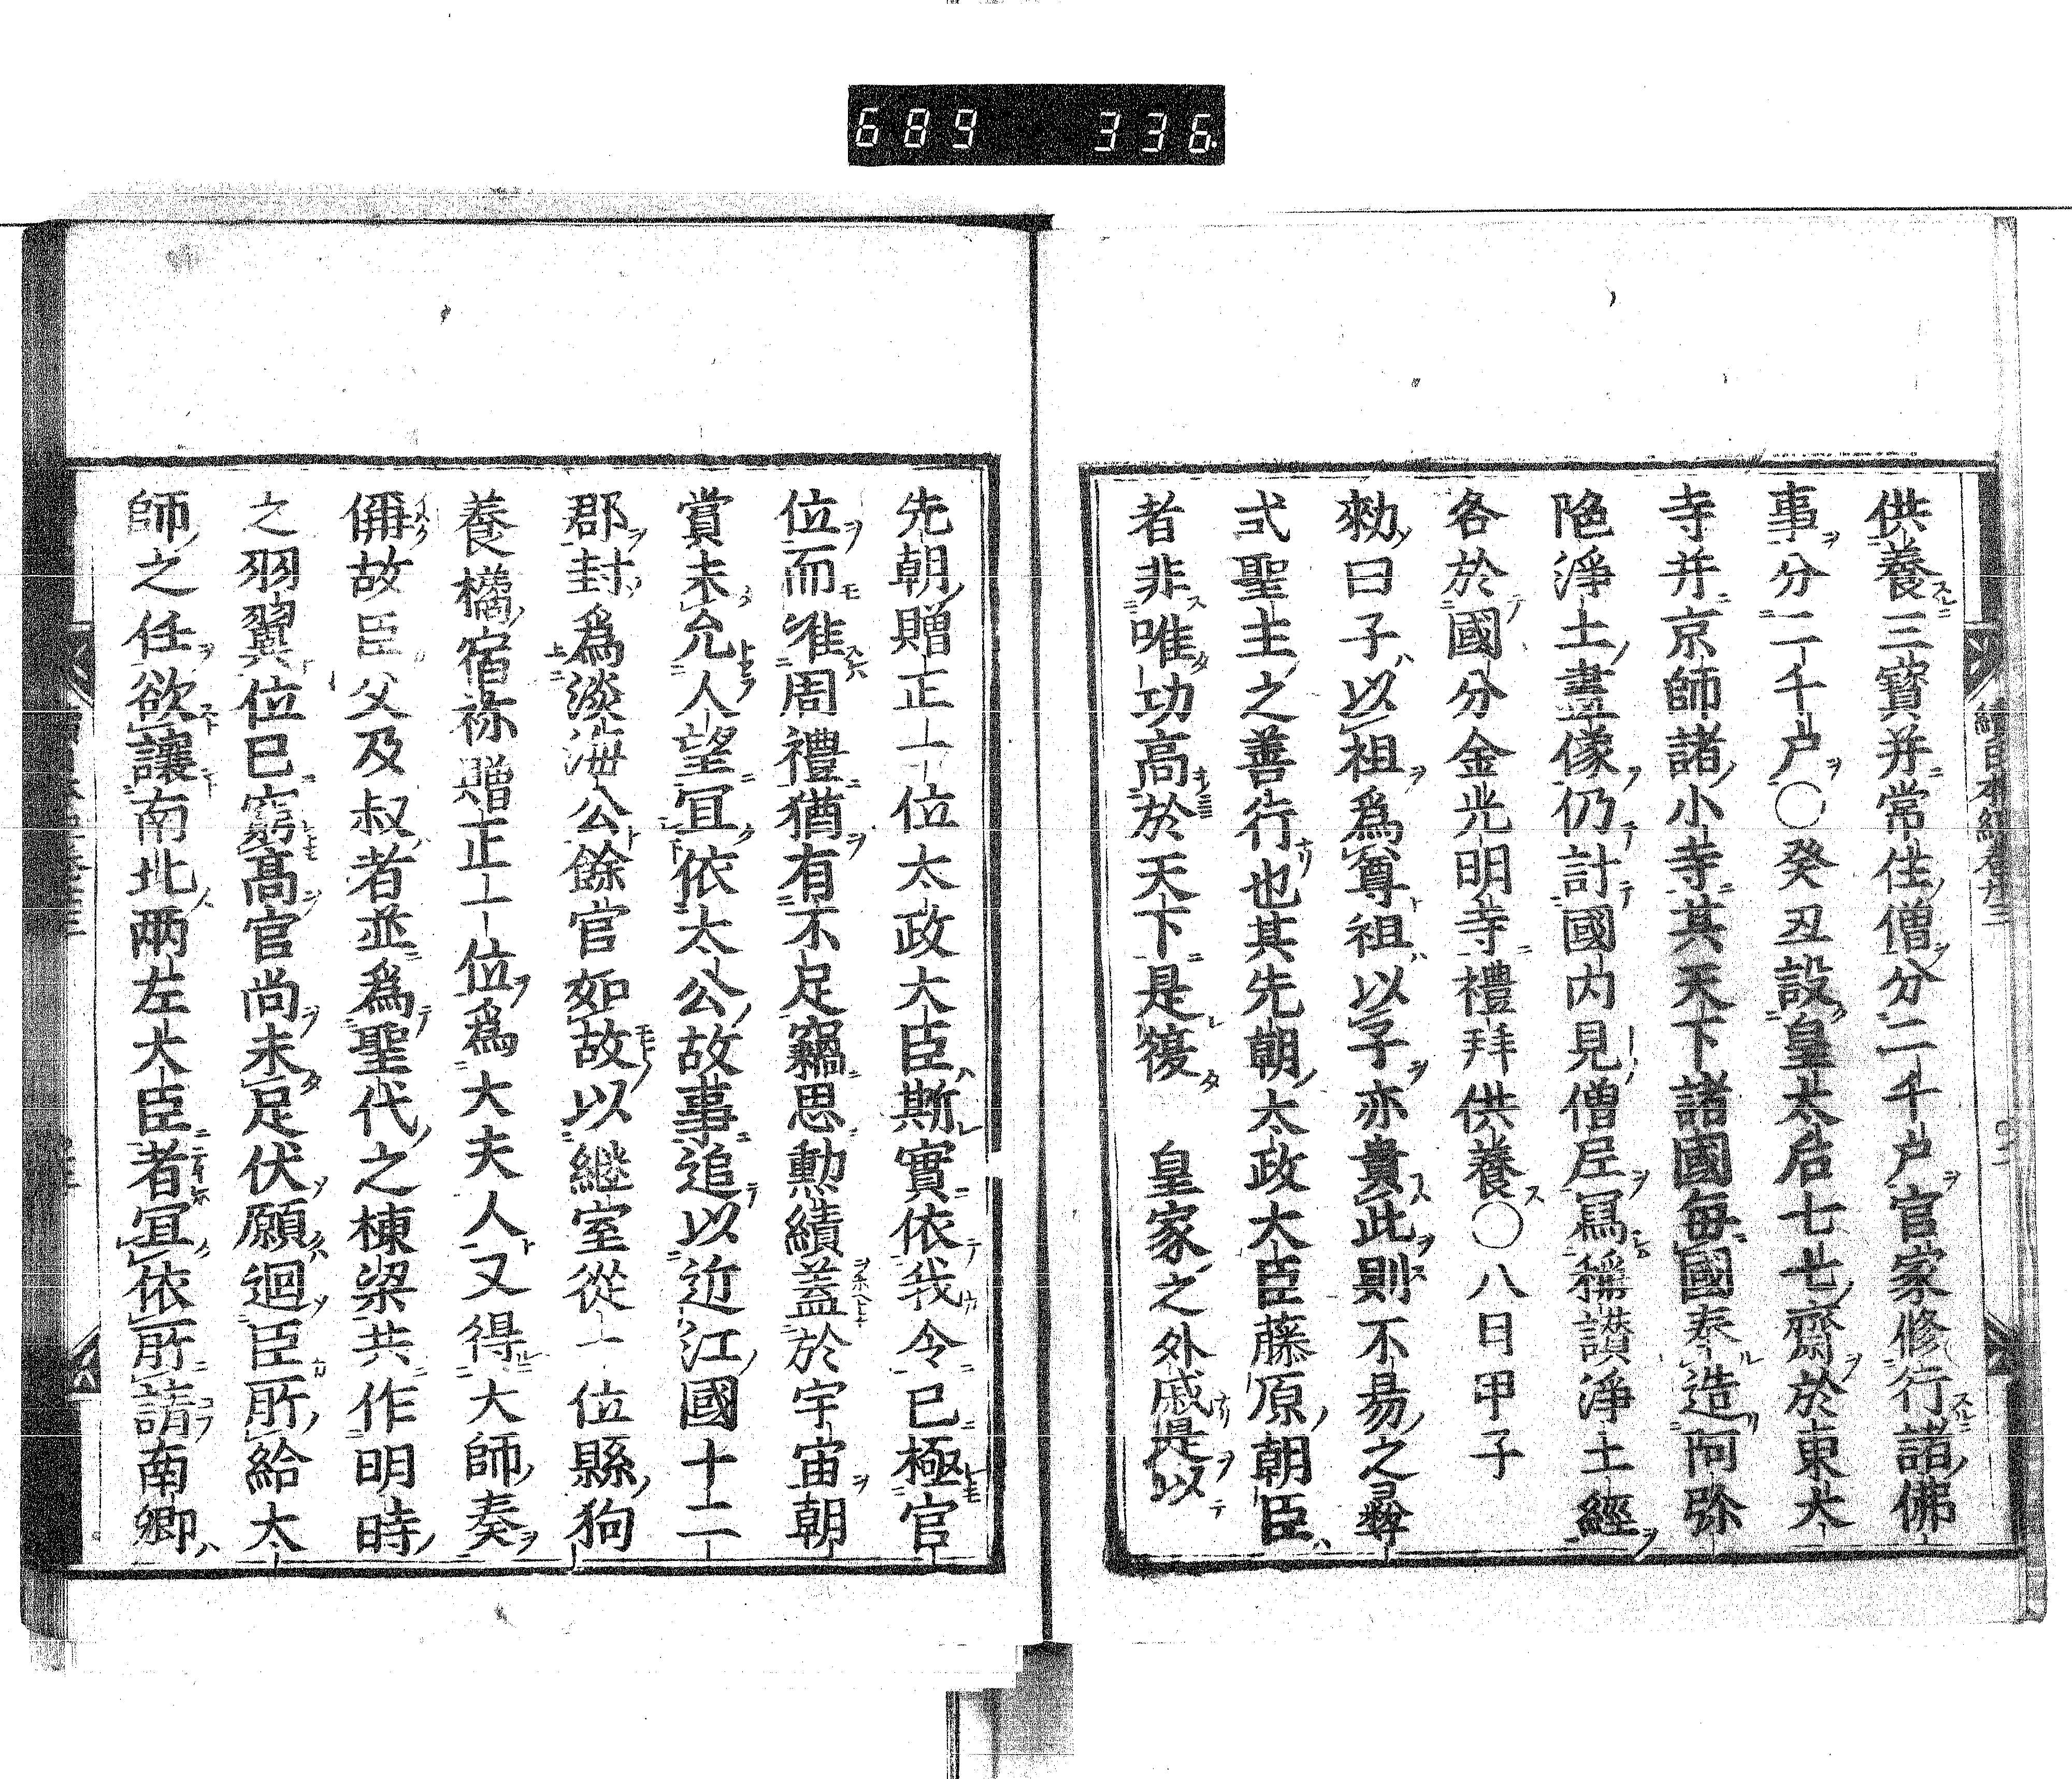 689 336
供養三寳并常住僧分二千戸官家修行諸佛
事分二千戸○癸丑設皇太后七七齋於東大
寺并京師諸小寺其天下諸國毎國奉造阿弥
陁淨土畫像仍計國内見僧尼寫稱讃淨土經
各於國分金光明寺禮拜供養○八日甲子
勑曰子以祖爲尊祖以子亦貴此則不易之彝
式聖主之善行也其先朝太政大臣藤原朝臣
者非唯功高於天下是復　皇家之外戚是以
先朝贈正一位太政大臣斯實依我令已極官
位而准周禮猶有不足竊思勲績蓋於宇宙朝
賞未允人望冝依太公故事追以近江國十二
郡封爲淡海公餘官如故以継室從一位縣狗
養橘宿祢贈正一位爲大夫人又得大師奏
偁故臣父及叔者並爲聖代之棟梁共作明時
之羽翼位已窮髙官尚未足伏願迴臣所給太
師之任欲讓南北两左大臣者冝依所請南卿
續日本紀卷廿三